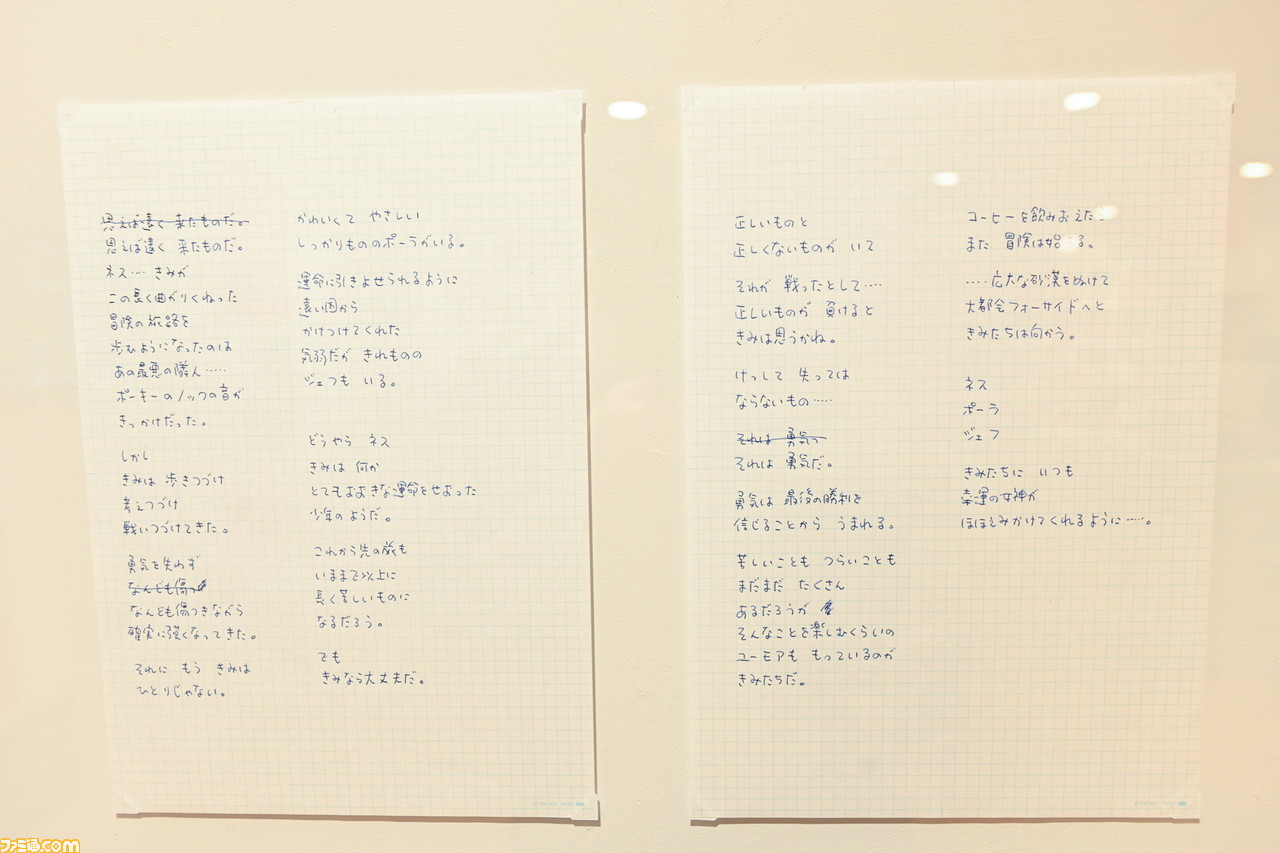 思えば遠く 来たものだ。
思えば遠く 来たものだ。
ネス‥‥ きみが
この長く曲がりくねった
冒険の旅路を
歩むようになったのは
あの最悪の隣人‥‥‥
ポーキーのノックの音が
きっかけだった。
しかし
きみは 歩きつづけ
考えつづけ
戦いつづけてきた。
勇気を失わず
なんども傷つ
なんども傷つきながら
確実に強くなってきた。
それに もう きみは
ひとりじゃない。
かわいくて やさしい
しっかりもののポーラがいる。
運命に引きよせられるように
遠い国から
かけつけてくれた
気弱だが きれものの
ジェフも いる。
どうやら ネス
きみは 何か
とてもおおきな運命をせおった
少年のようだ。
これから先の旅も
いままで以上に
長く苦しいものに
なるだろう。
でも
きみなら大丈夫だ。
正しいものと
正しくないものが いて
それが 戦ったとして‥‥
正しいものが 負けると
きみは思うかね。
けっして 失っては
ならないもの‥‥‥
それは 勇気っ
それは 勇気だ。
勇気は 最後の勝利を
信じることから うまれる。
苦しいことも つらいことも
まだまだ たくさん
あるだろうが
そんなことを楽しむくらいの
ユーモアも もっているのが
きみたちだ。
コーヒーを飲みおえた
また 冒険は始 る。
‥‥‥広大な砂漠をぬけて
大都会フォーサイドへと
きみたちは向かう。
ネス
ポーラ
ジェフ
きみたちに いつも
幸運の女神が
ほほえみかけてくれるように‥‥‥。
ファミ通.com